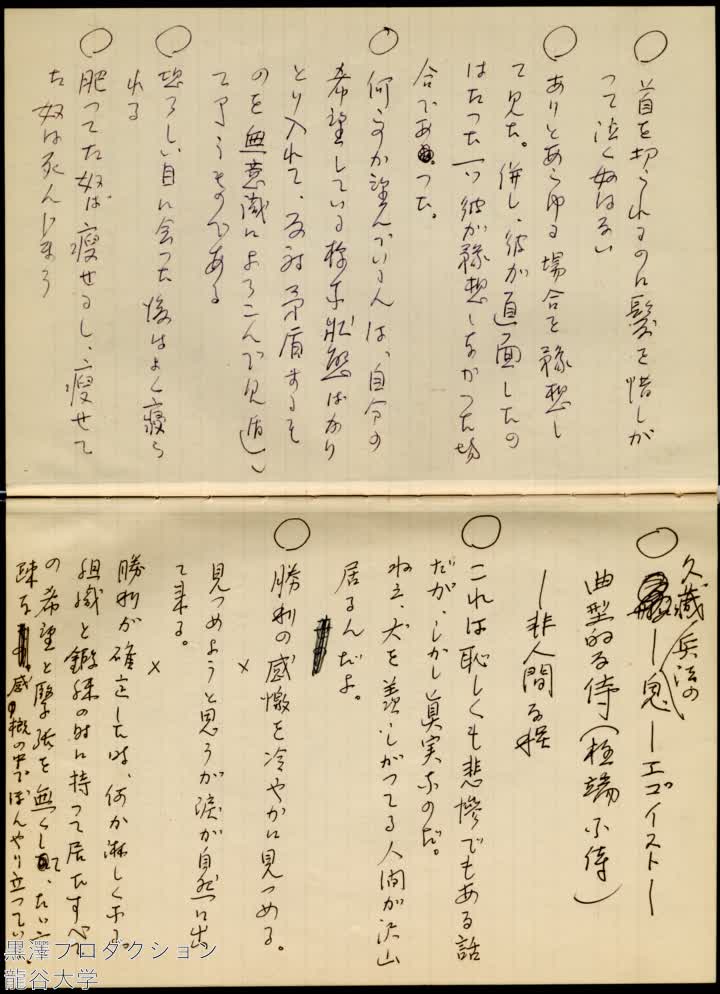 首を切られるのに髪を惜しが
って泣く奴はない
ありとあらゆる場合を豫想し
て見た。併し、彼が直面したの
はたった一つ彼が豫想しなかった場
合であった。
何かを望んでいる人は、自分の
希望している様な狀態ばかり
とり入れて、反対矛盾するも
のを無意識によろこんで見逃し
て了うものである
恐ろしい目に会った後はよく寝ら
れる
肥ってた奴は瘦せるし、瘦せて
た奴は死んじまう
久蔵
兵法の
鬼ーエゴイストー
典型的な侍（極端な侍）
ー非人間な様
これは恥しくも悲惨でもある話
だが、しかし眞実なのだ。
ねえ、犬を羨しがってる人间が沢山
居るんだよ。
勝利の感懐を冷やかに見つめる。
×
見つめようと思うが涙が自然に出
て来る。
×
勝利が確定した時、何か淋しくなる。
組織と鍛錬の時に持って居たすべて
の希望と緊張を無くして、
感慨の中でぼんやり立ってい
黒澤プロダクション
龍谷大学